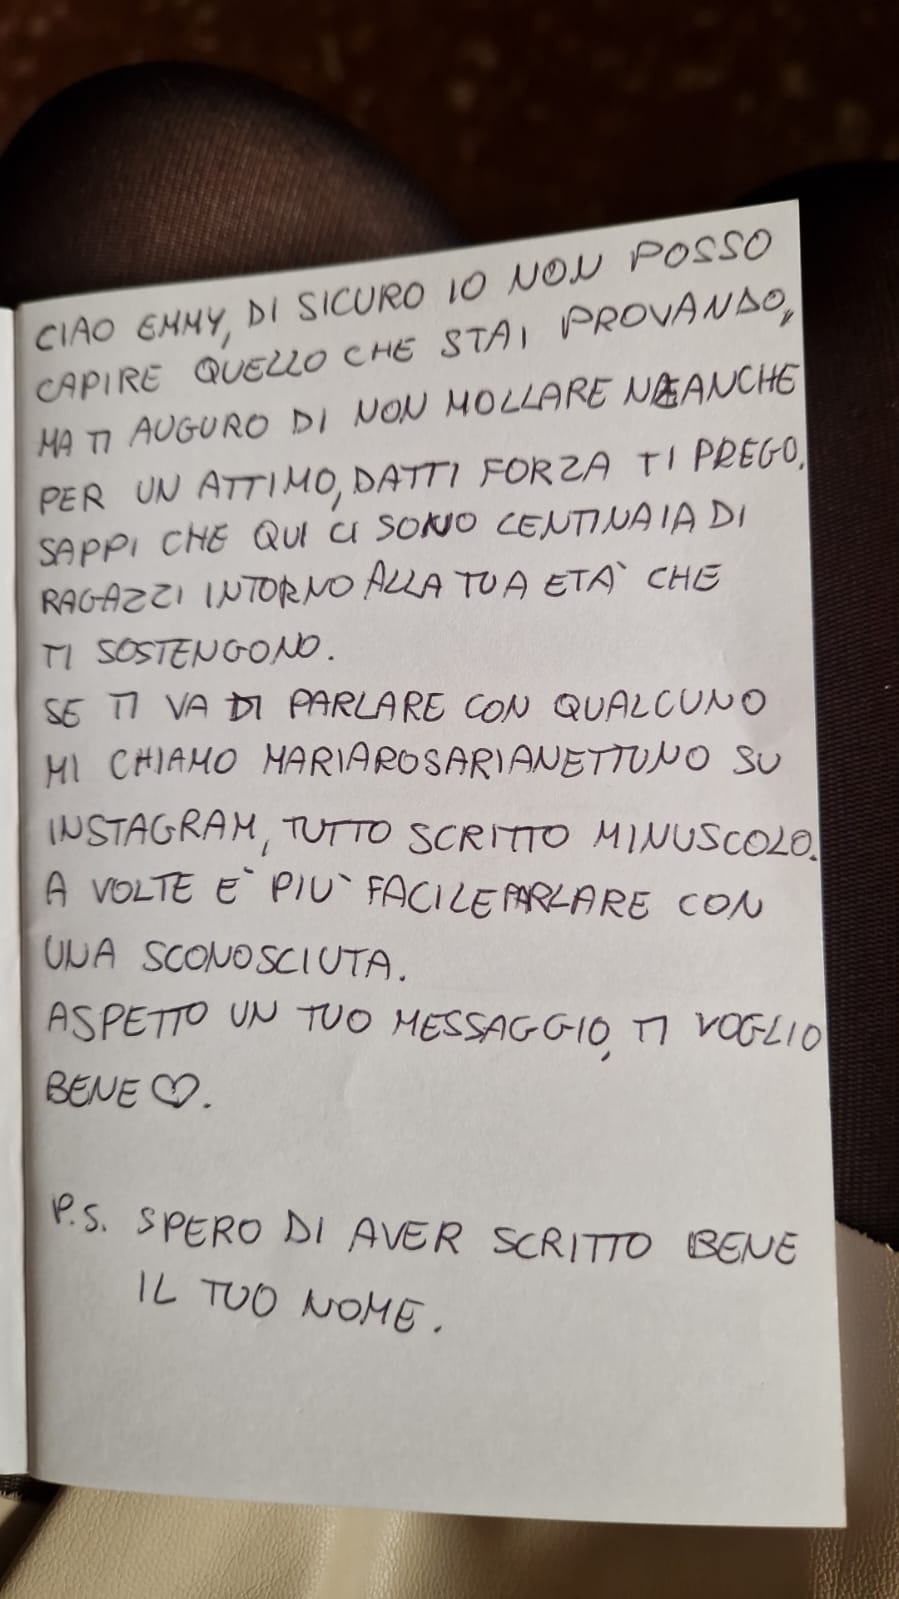 CIAO EMMY, DI SICURO IO NON POSSO
CAPIRE QUELLO CHE STAI PROVANDO,
MA TI AUGURO DI NON MOLLARE NEANCHE
PER UN ATTIMO, DATTI FORZA TI PREGO.
SAPPI CHE QUI CI SONO CENTINAIA DI
RAGAZZI INTORNO ALLA TUA ETÀ CHE
TI SOSTENGONO.
SE TI VA DI PARLARE CON QUALCUNO
MI CHIAMO MARIAROSARIANETTUNO SU
INSTAGRAM, TUTTO SCRITTO MINUSCOLO.
A VOLTE È PIÙ FACILE PARLARE CON
UNA SCONOSCIUTA.
ASPETTO UN TUO MESSAGGIO, TI VOGLIO
BENE♡.
P.S. SPERO DI AVER SCRITTO BENE
IL TUO NOME.